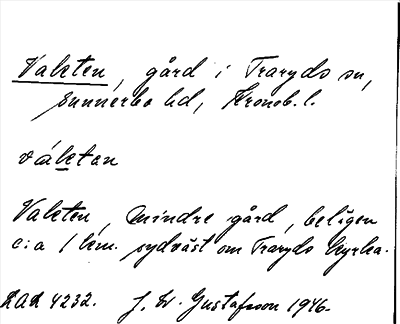 Vakten, gård i Traryds sn,
Sunnerbo hd, Kronob. l.
våktan
Vakten, mindre gård, belägen
c:a 1 km. sydväst om Traryds kyrka.
4232. J. W. Gustafsson 1946.